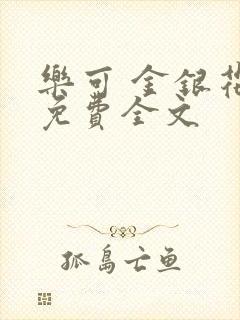 樂可 金銀花
免費全文
孤島亡鱼